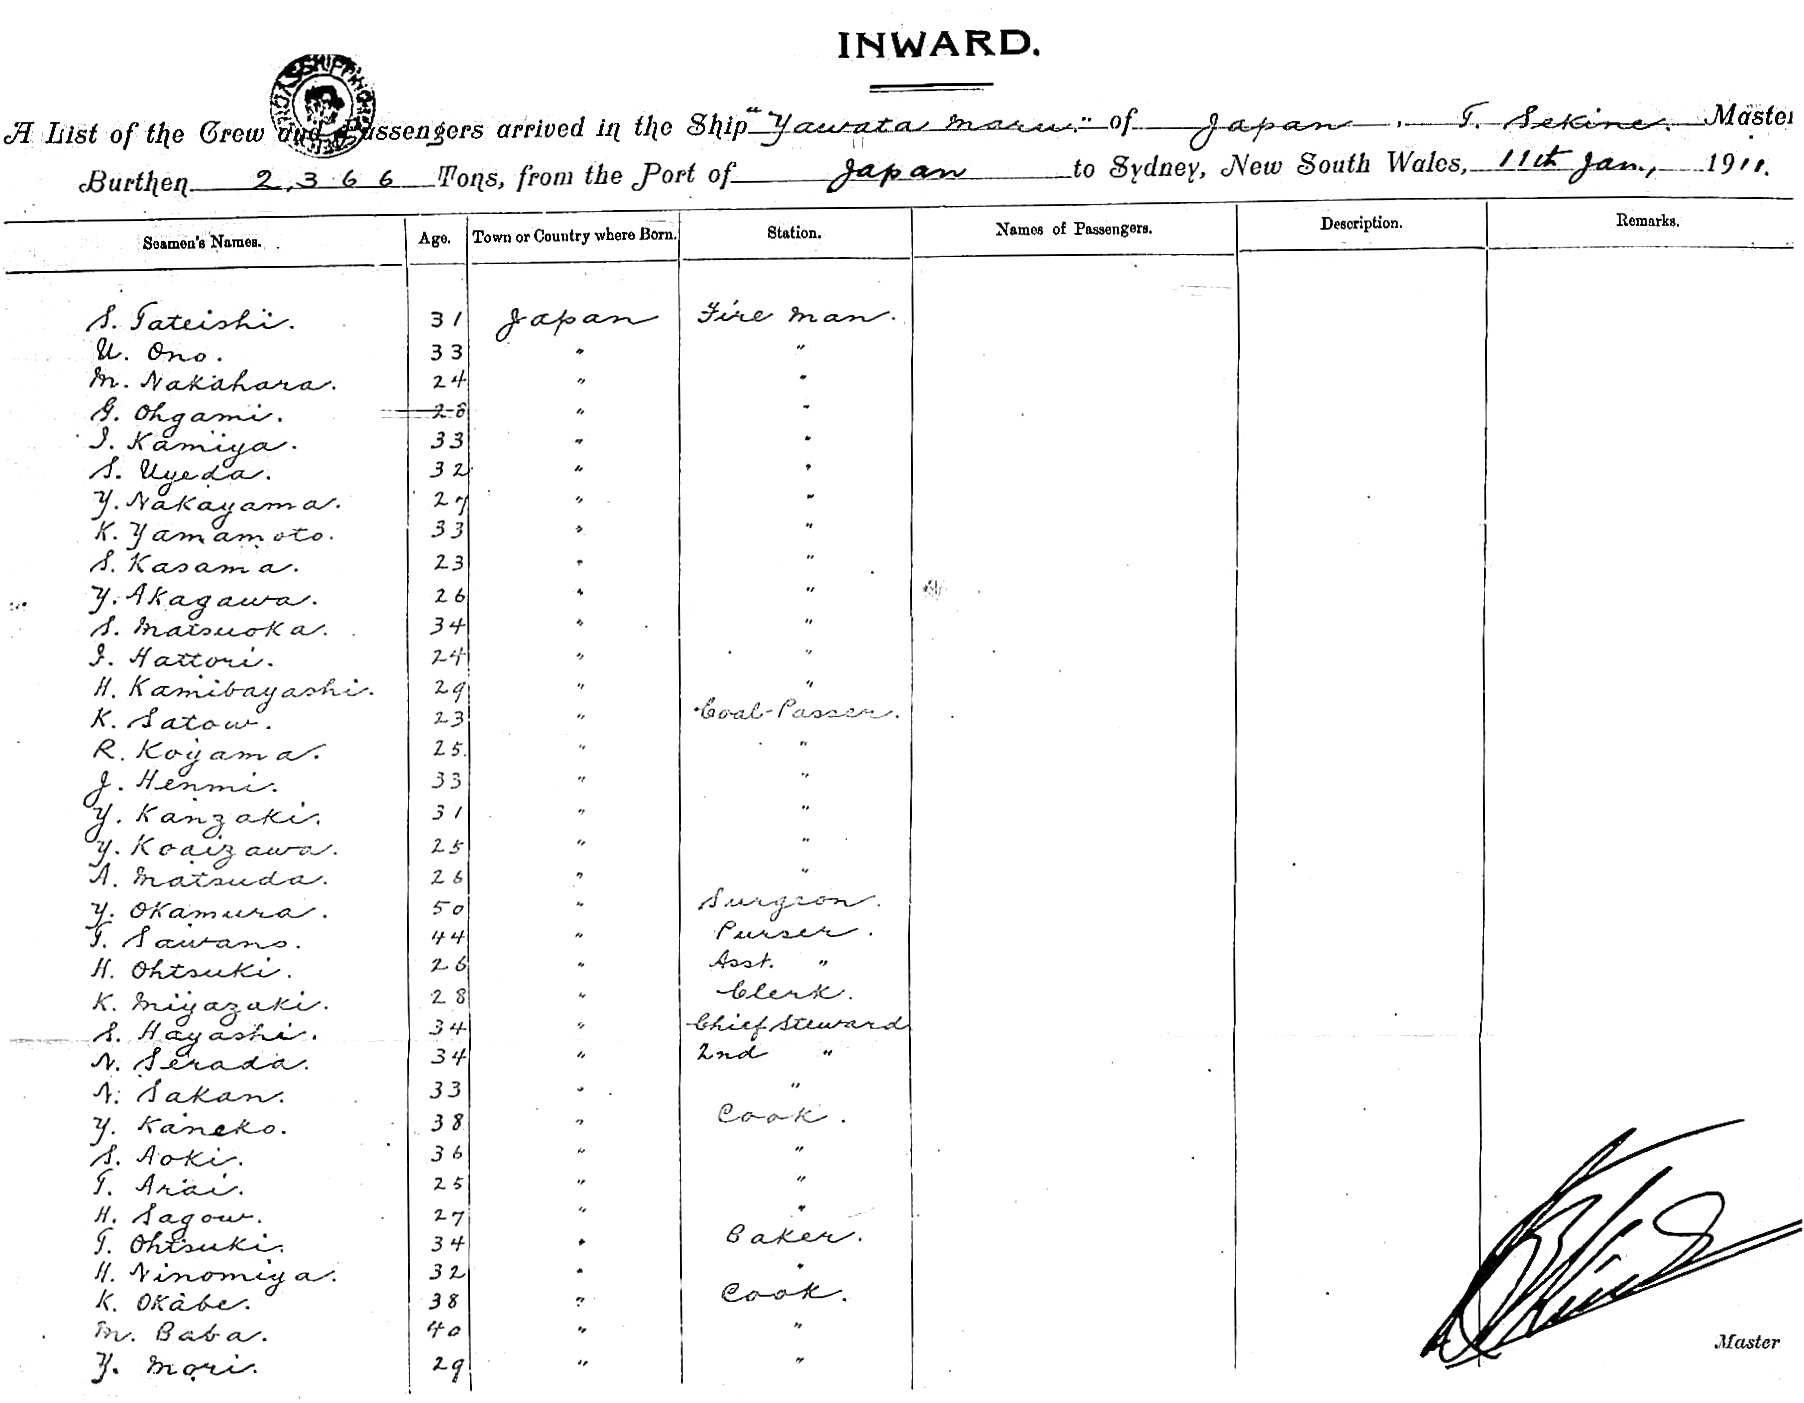 INWARD.
A List of the Crew and Passengers arrived in the Ship "Yawata Maru." of Japan, T. Sekine. Master
Burthen 2,366 Tons, from the Port of Japan to Sydney, New South Wales, 11th Jan., 1911.
Seamen's Names. Age. Town or Country where Born. Station. Names of Passengers. Description. Remarks.
S. Tateishi. 31 Japan Fire man.
U. Ono. 33 " "
M. Nakahara. 24 " "
G. Ohgami. 28 " "
I. Kamiya. 33 " "
S. Uyeda. 32 " "
Y. Nakayama. 27 " "
K. Yamamoto. 33 " "
S. Kasama. 23 " "
Y. Akagawa. 26 " "
S. Matsuoka. 34 " "
I. Hattori. 24 " "
H. Kamibayashi. 29 " "
K. Satow. 23 " Coal-Passer.
R. Koyama. 25. " "
J. Henmi. 33 " "
Y. Kanzaki. 31 " "
Y. Koaizawa. 25 " "
A. Matsuda. 26 " "
Y. Okamura. 50 " Surgeon.
T. Sawano. 44 " Purser.
H. Ohtsuki. 26 " Asst. "
K. Miyazaki. 28 " Clerk.
S. Hayashi. 34 " Chief Steward
N. Serada. 34 " 2nd "
N. Sakan. 33 " "
Y. Kaneko. 38 " Cook.
S. Aoki. 36 " "
T. Arai. 25 " "
H. Sagow. 27 " "
T. Ohtsuki. 34 " Baker.
H. Ninomiya. 32 " "
K. Okabe. 38 " Cook.
M. Baba. 40 " "
Y. Mori. 29 " "
Master